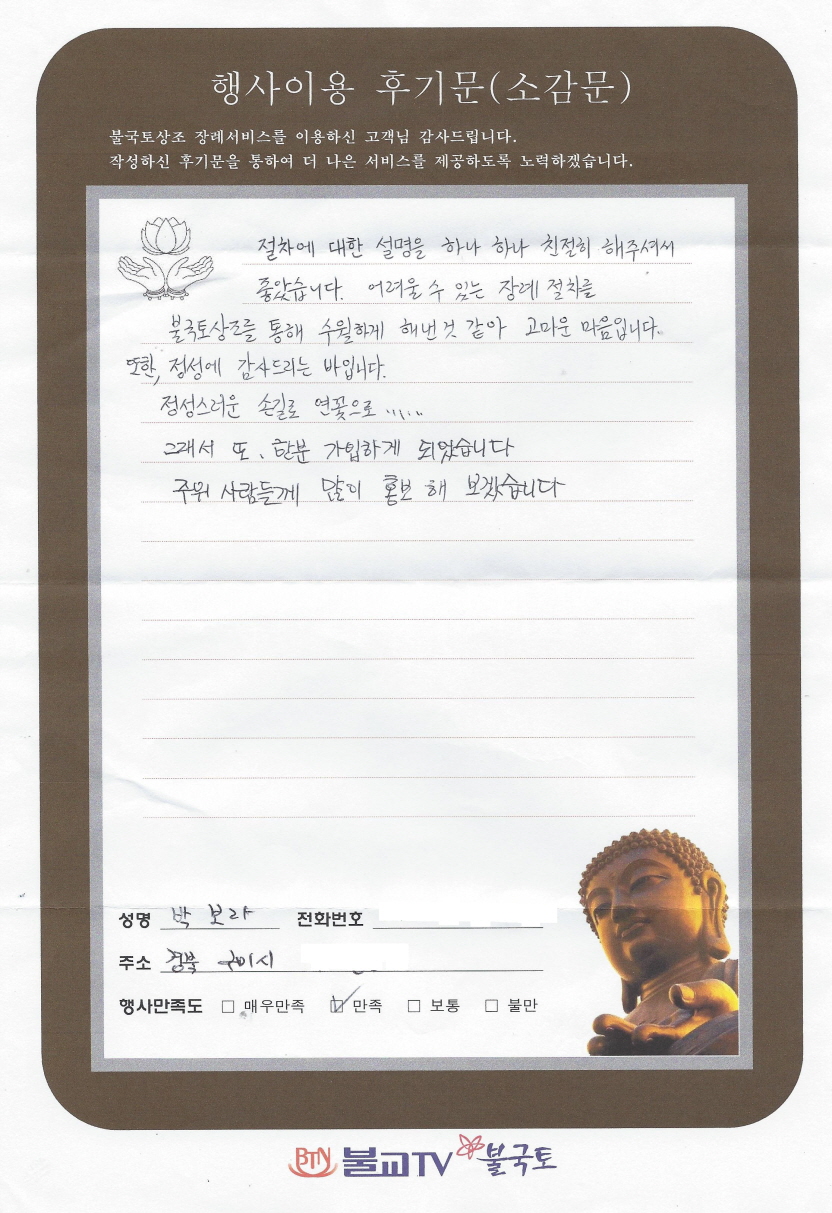 행사이용 후기문(소감문)
불국토상조 장례서비스를 이용하신 고객님 감사드립니다.
작성하신 후기문을 통하여 더 나은 서비스를 제공하도록 노력하겠습니다.
절차에 대한 설명을 하나 하나 친절히 해주셔서
좋았습니다. 어려울 수 있는 장례 절차를
불국토상조를 통해 수월하게 해낸것 같아 고마운 마음입니다.
또한, 정성에 감사드리는 바입니다.
정성스러운 손길로 연꽃으로 ......
그래서 또, 한분 가입하게 되었습니다
주위 사람들께 많이 홍보 해 보겠습니다
성명 박 보라 전화번호
주소 경북 구미시
행사만족도 □ 매우만족 ☑ 만족 □ 보통 □ 불만
BTN 불교TV 불국토